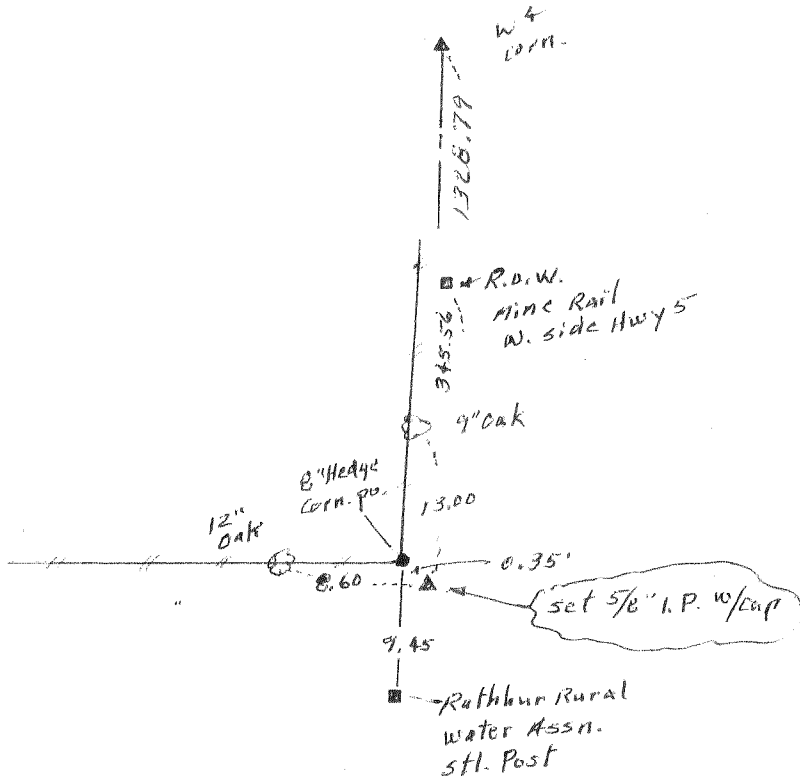 W 4
Corn.
1328.79
R.O.W.
Mine Rail
W. side Hwy 5
345.56
9" Oak
8" Hedge
Corn. po.
12"
Oak
13.00
0.35'
8.60
set 5/8" I.P. w/cap
9.45
Rathbun Rural
Water Assn.
stl. Post